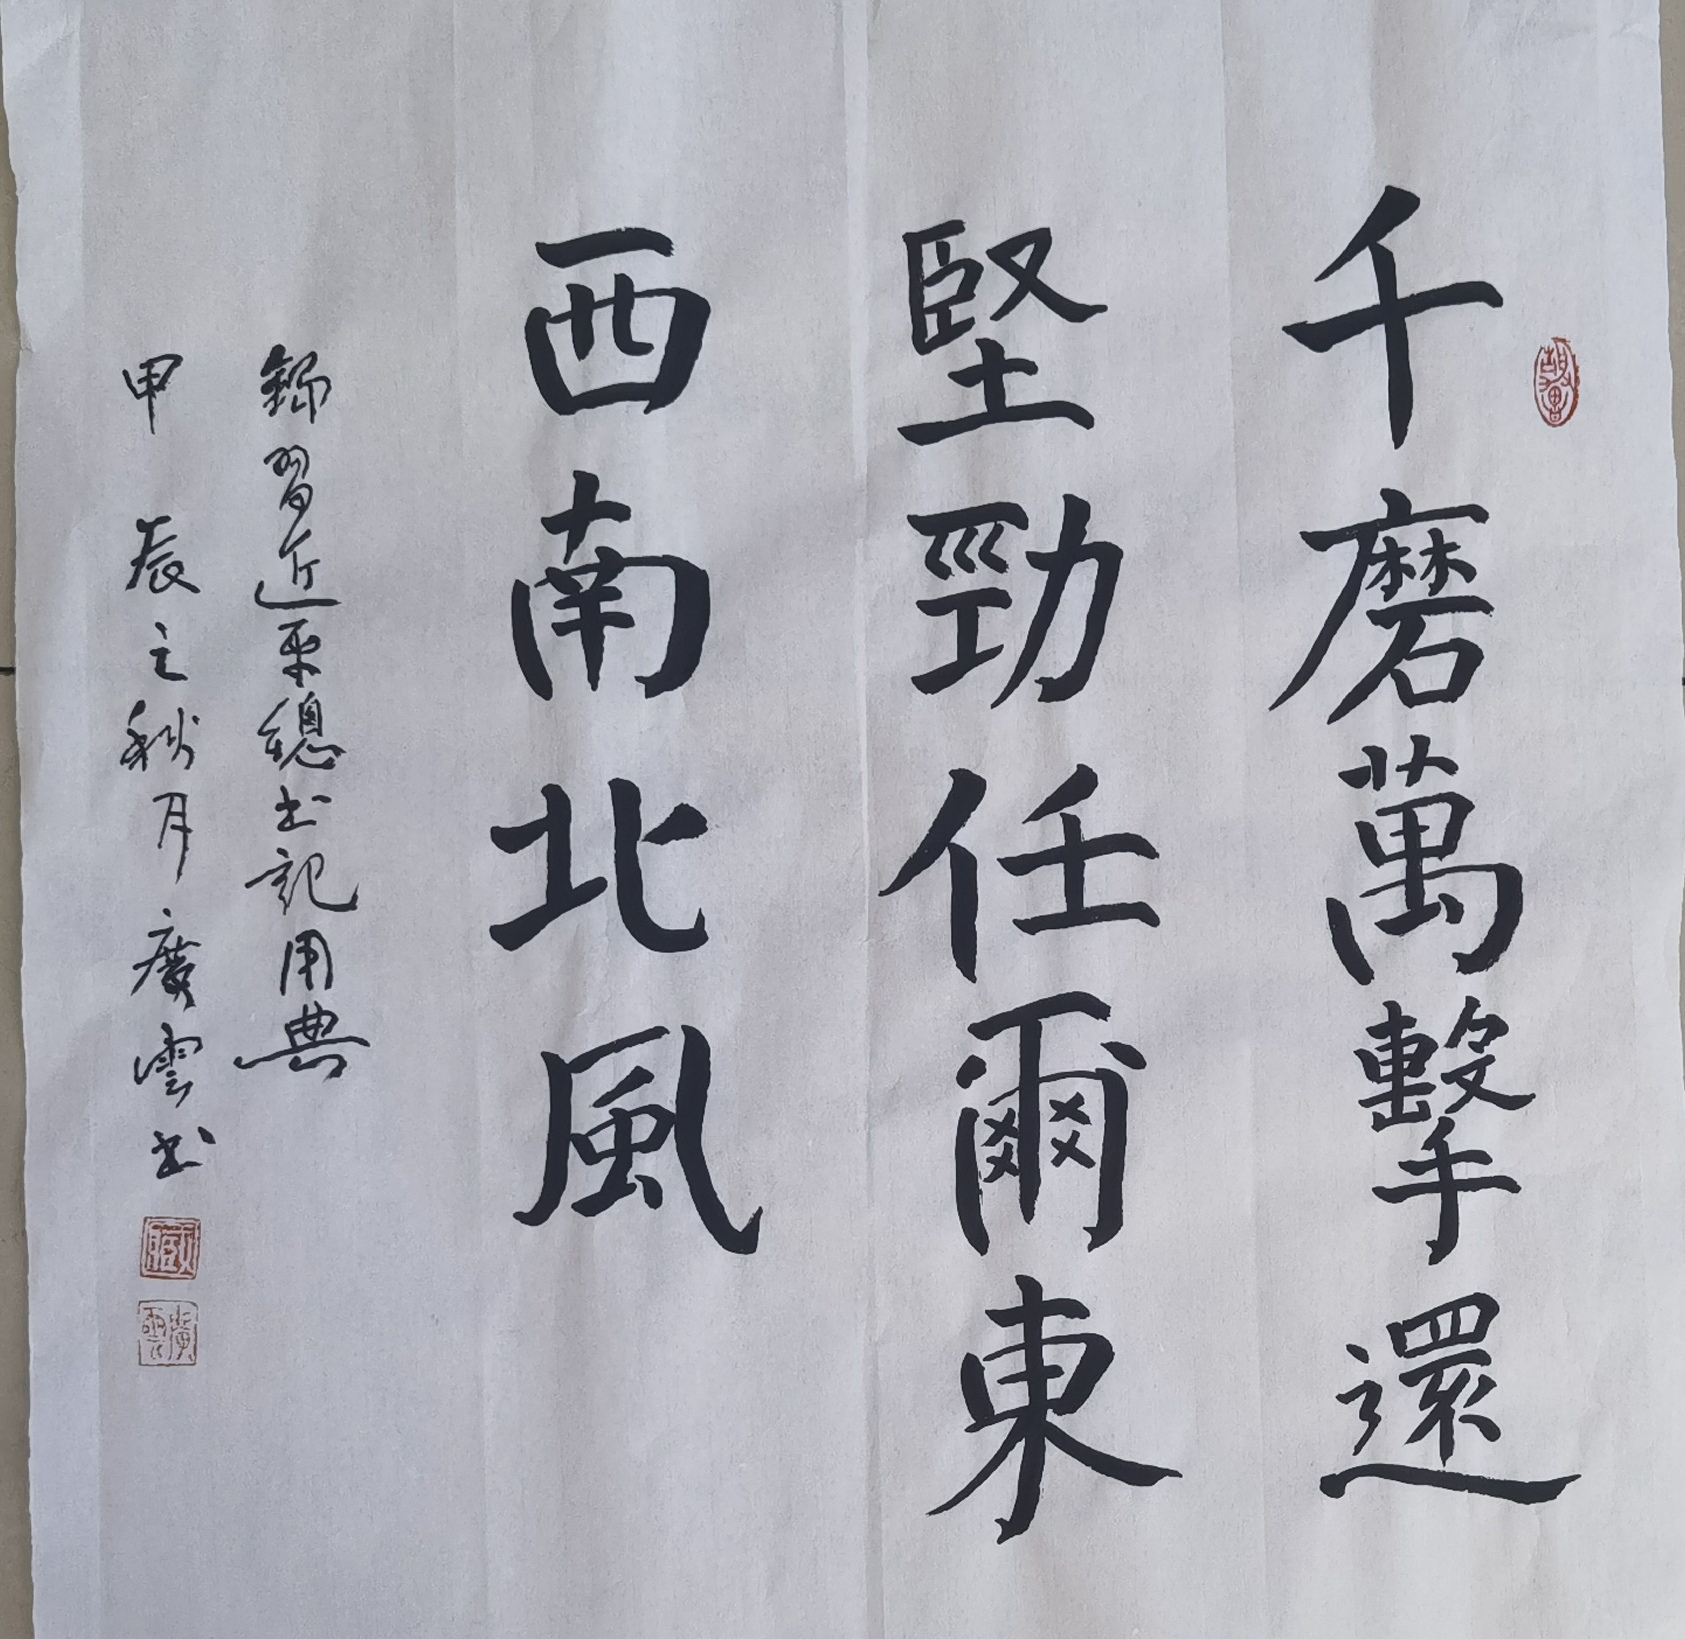 千磨萬擊還
堅勁任爾東
西南北風
錄習近平總书記用典
甲辰之秋月廣雲书